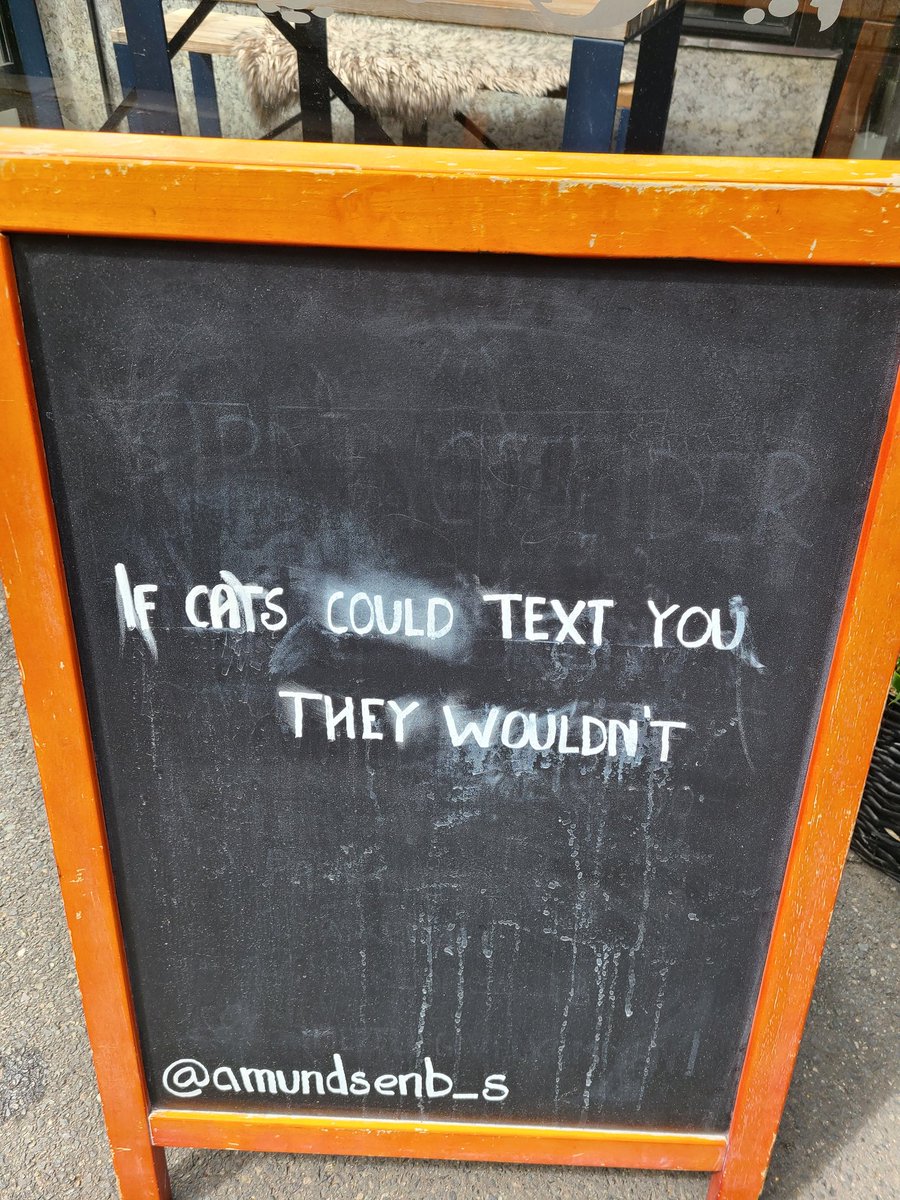 IF CATS COULD TEXT YOU
THEY WOULDN'T
@amundsenb_s